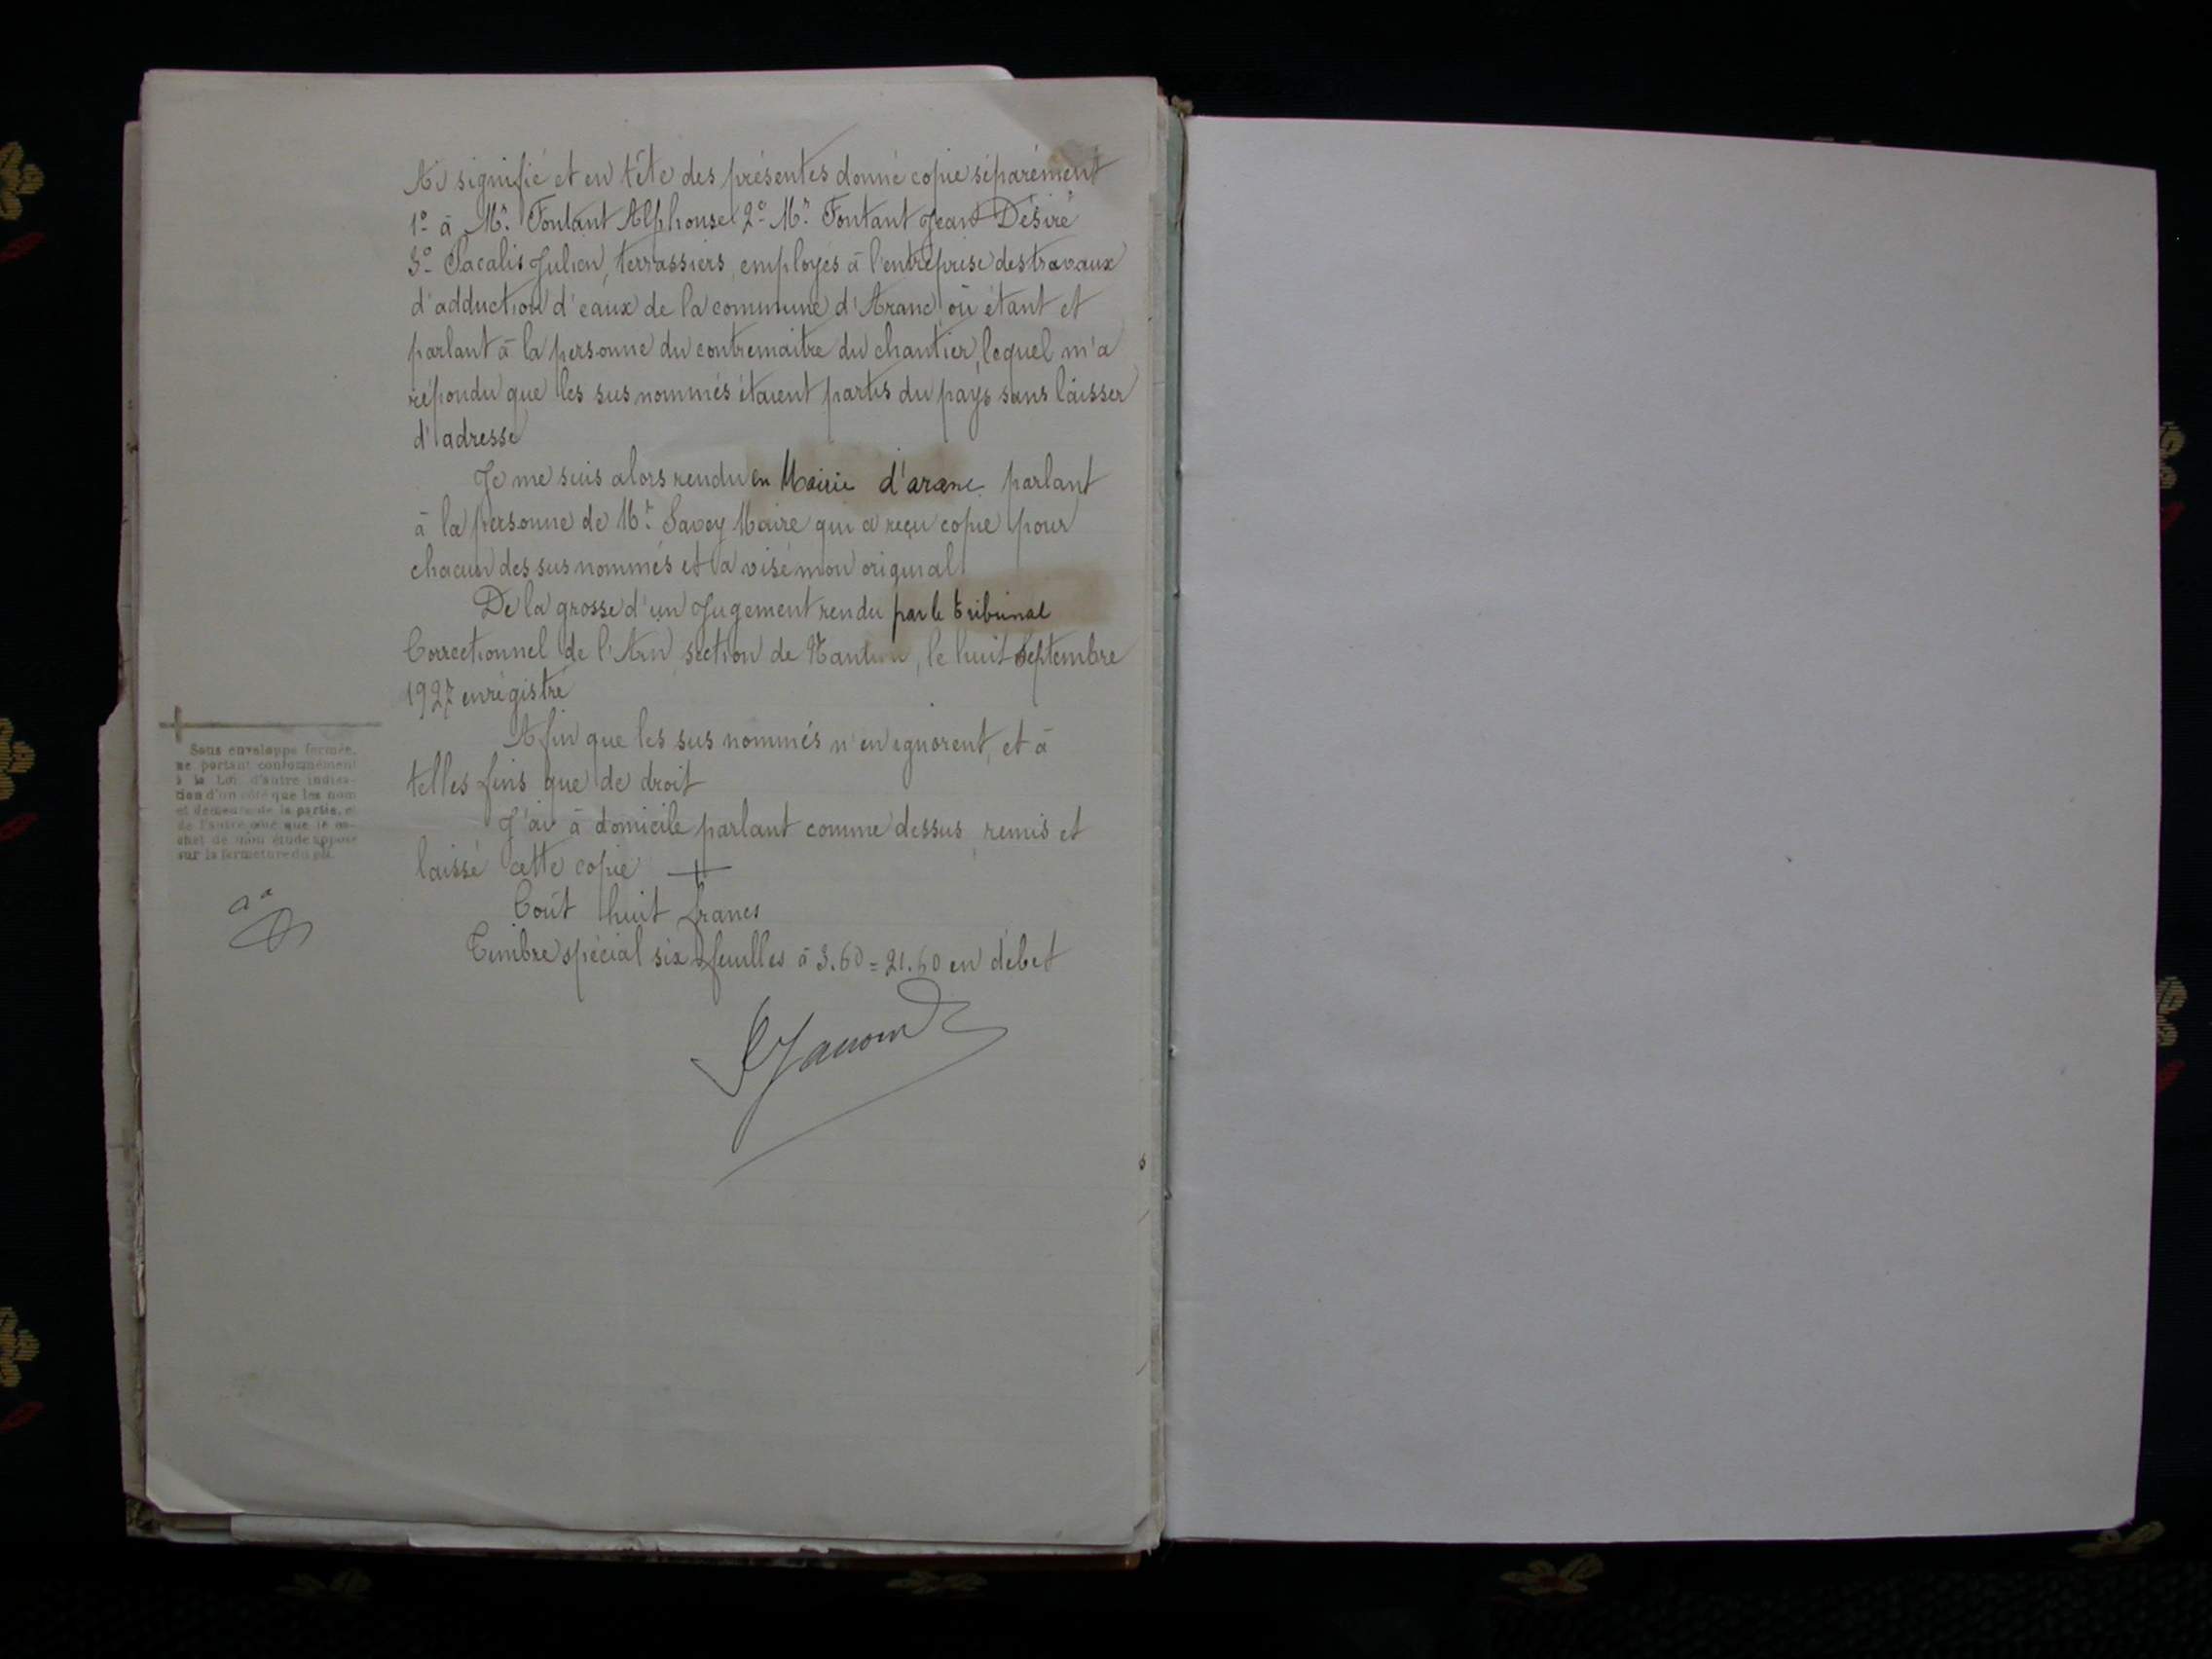 Ai signifié et en tête des présentes donné copie séparément
1º à Mr. Fontant Alphonse 2º Mr. Fontant Jean Désiré
3º Sacalis Julien, terrassiers, employés à l'entreprise des travaux
d'adduction d'eaux de la commune d'Aranc où étant et
parlant à la personne du contremaitre du chantier, lequel m'a
répondu que les sus nommés étaient partis du pays sans laisser
d'adresse
Je me suis alors rendu en Mairie d'aranc parlant
à la personne de Mr. Savey Maire qui a reçu copie pour
chacun des sus nommés et a visé mon original.
De la grosse d'un Jugement rendu par le tribunal
Correctionnel de l'Ain section de Nantua, le huit Septembre
1927 enrégistré
Afin que les sus nommés n'en ignorent, et à
telles fins que de droit
J'ai à domicile parlant comme dessus, remis et
laissé cette copie
Coût huit francs
Timbre spécial six feuilles à 3.60 = 21.60 en débet
Sous enveloppe fermée,
ne portant conformément
à la Loi d'autre indica-
tion d'un côté que les nom
et demeure de la partie, et
de l'autre côté que le ca-
chet de mon étude apposé
sur la fermeture du pli.